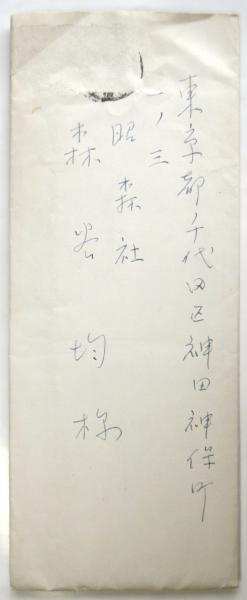 東京都千代田区神田神保町
一ノ三
昭森社
森谷均様